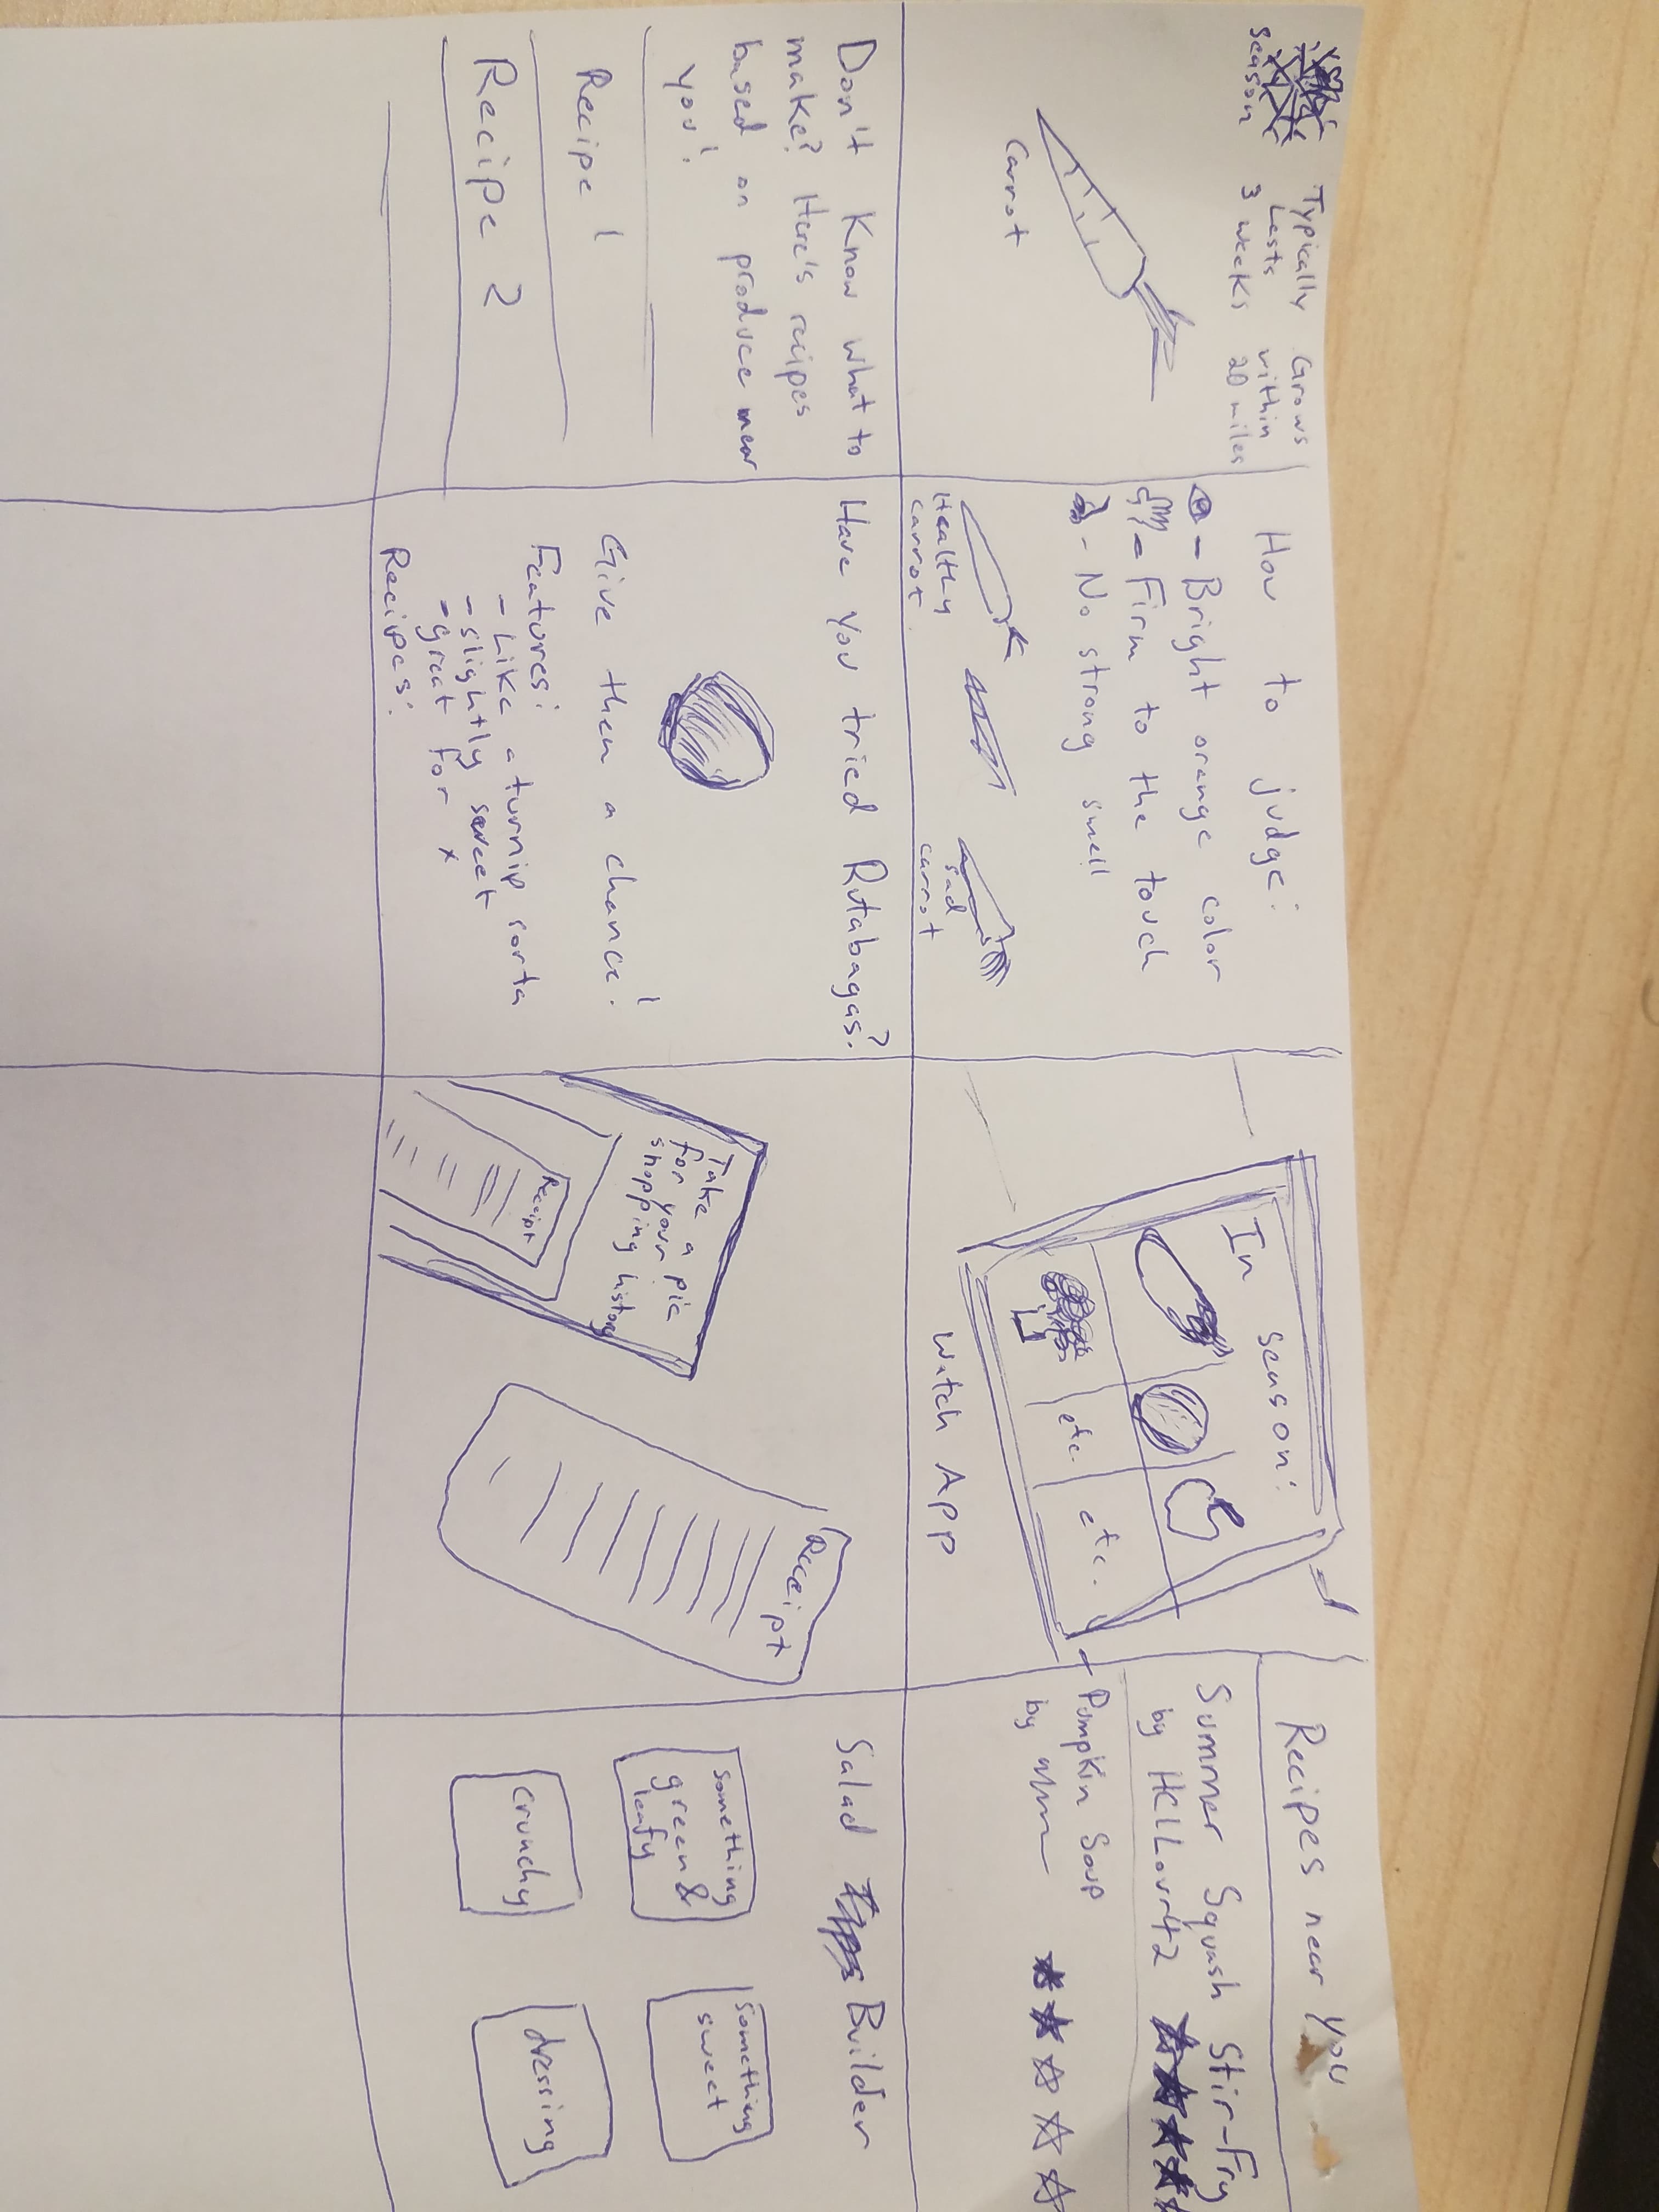 Season
Typically
Lasts
3 weeks
Grows
within
20 miles
Carrot
How to judge:
- Bright orange color
- Firm to the touch
- No strong smell
Healthy
carrot
sad
carrot
In season:
etc.
etc.
Watch App
Recipes near you
Summer Squash Stir-Fry
by HCILovr42
Pumpkin Soup
by
Don't know what to
make? Here's recipes
based on produce near
you!
Recipe 1
Recipe 2
Have you tried Rutabagas?
Give them a chance!
Features:
- Like a turnip sorta
- slightly sweet
- great for x
Recipes:
Take a pic
for your
shopping history
Receipt
Receipt
Salad Builder
something
green &
leafy
something
sweet
crunchy
dressing